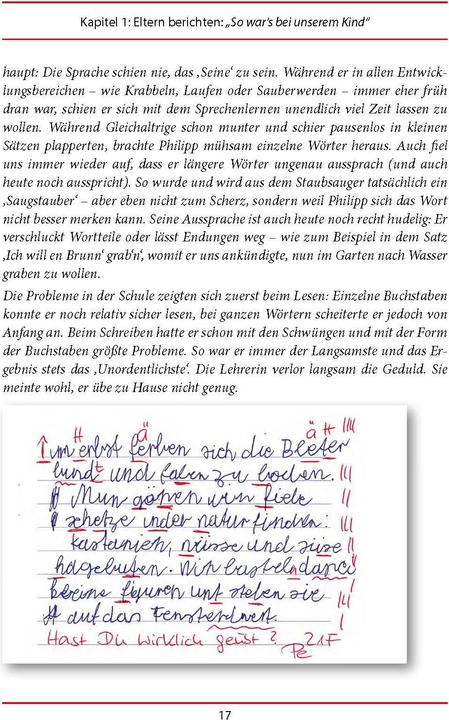 Kapitel 1: Eltern berichten: „So war's bei unserem Kind“
haupt: Die Sprache schien nie, das ‚Seine‘ zu sein. Während er in allen Entwick-
lungsbereichen – wie Krabbeln, Laufen oder Sauberwerden – immer eher früh
dran war, schien er sich mit dem Sprechenlernen unendlich viel Zeit lassen zu
wollen. Während Gleichaltrige schon munter und schier pausenlos in kleinen
Sätzen plapperten, brachte Philipp mühsam einzelne Wörter heraus. Auch fiel
uns immer wieder auf, dass er längere Wörter ungenau aussprach (und auch
heute noch ausspricht). So wurde und wird aus dem Staubsauger tatsächlich ein
‚Saugstauber‘ – aber eben nicht zum Scherz, sondern weil Philipp sich das Wort
nicht besser merken kann. Seine Aussprache ist auch heute noch recht hudelig: Er
verschluckt Wortteile oder lässt Endungen weg – wie zum Beispiel in dem Satz
‚Ich will en Brunn‘ grab‘n‘, womit er uns ankündigte, nun im Garten nach Wasser
graben zu wollen.
Die Probleme in der Schule zeigten sich zuerst beim Lesen: Einzelne Buchstaben
konnte er noch relativ sicher lesen, bei ganzen Wörtern scheiterte er jedoch von
Anfang an. Beim Schreiben hatte er schon mit den Schwüngen und mit der Form
der Buchstaben größte Probleme. So war er immer der Langsamste und das Er-
gebnis stets das ‚Unordentlichste‘. Die Lehrerin verlor langsam die Geduld. Sie
meinte wohl, er übe zu Hause nicht genug.
H ä ä H
im erbst ferben sich die Bleter
bund und falen zu boden.
Nun gönen wir fiele
schetze inder natur finden:
kastanjen, nüsse und süse
hagebuten. Wir basteln
figuren unt stelen sie
auf das Fensterbrett.
Hast Du wirklich geübt? 21F
Pe
17